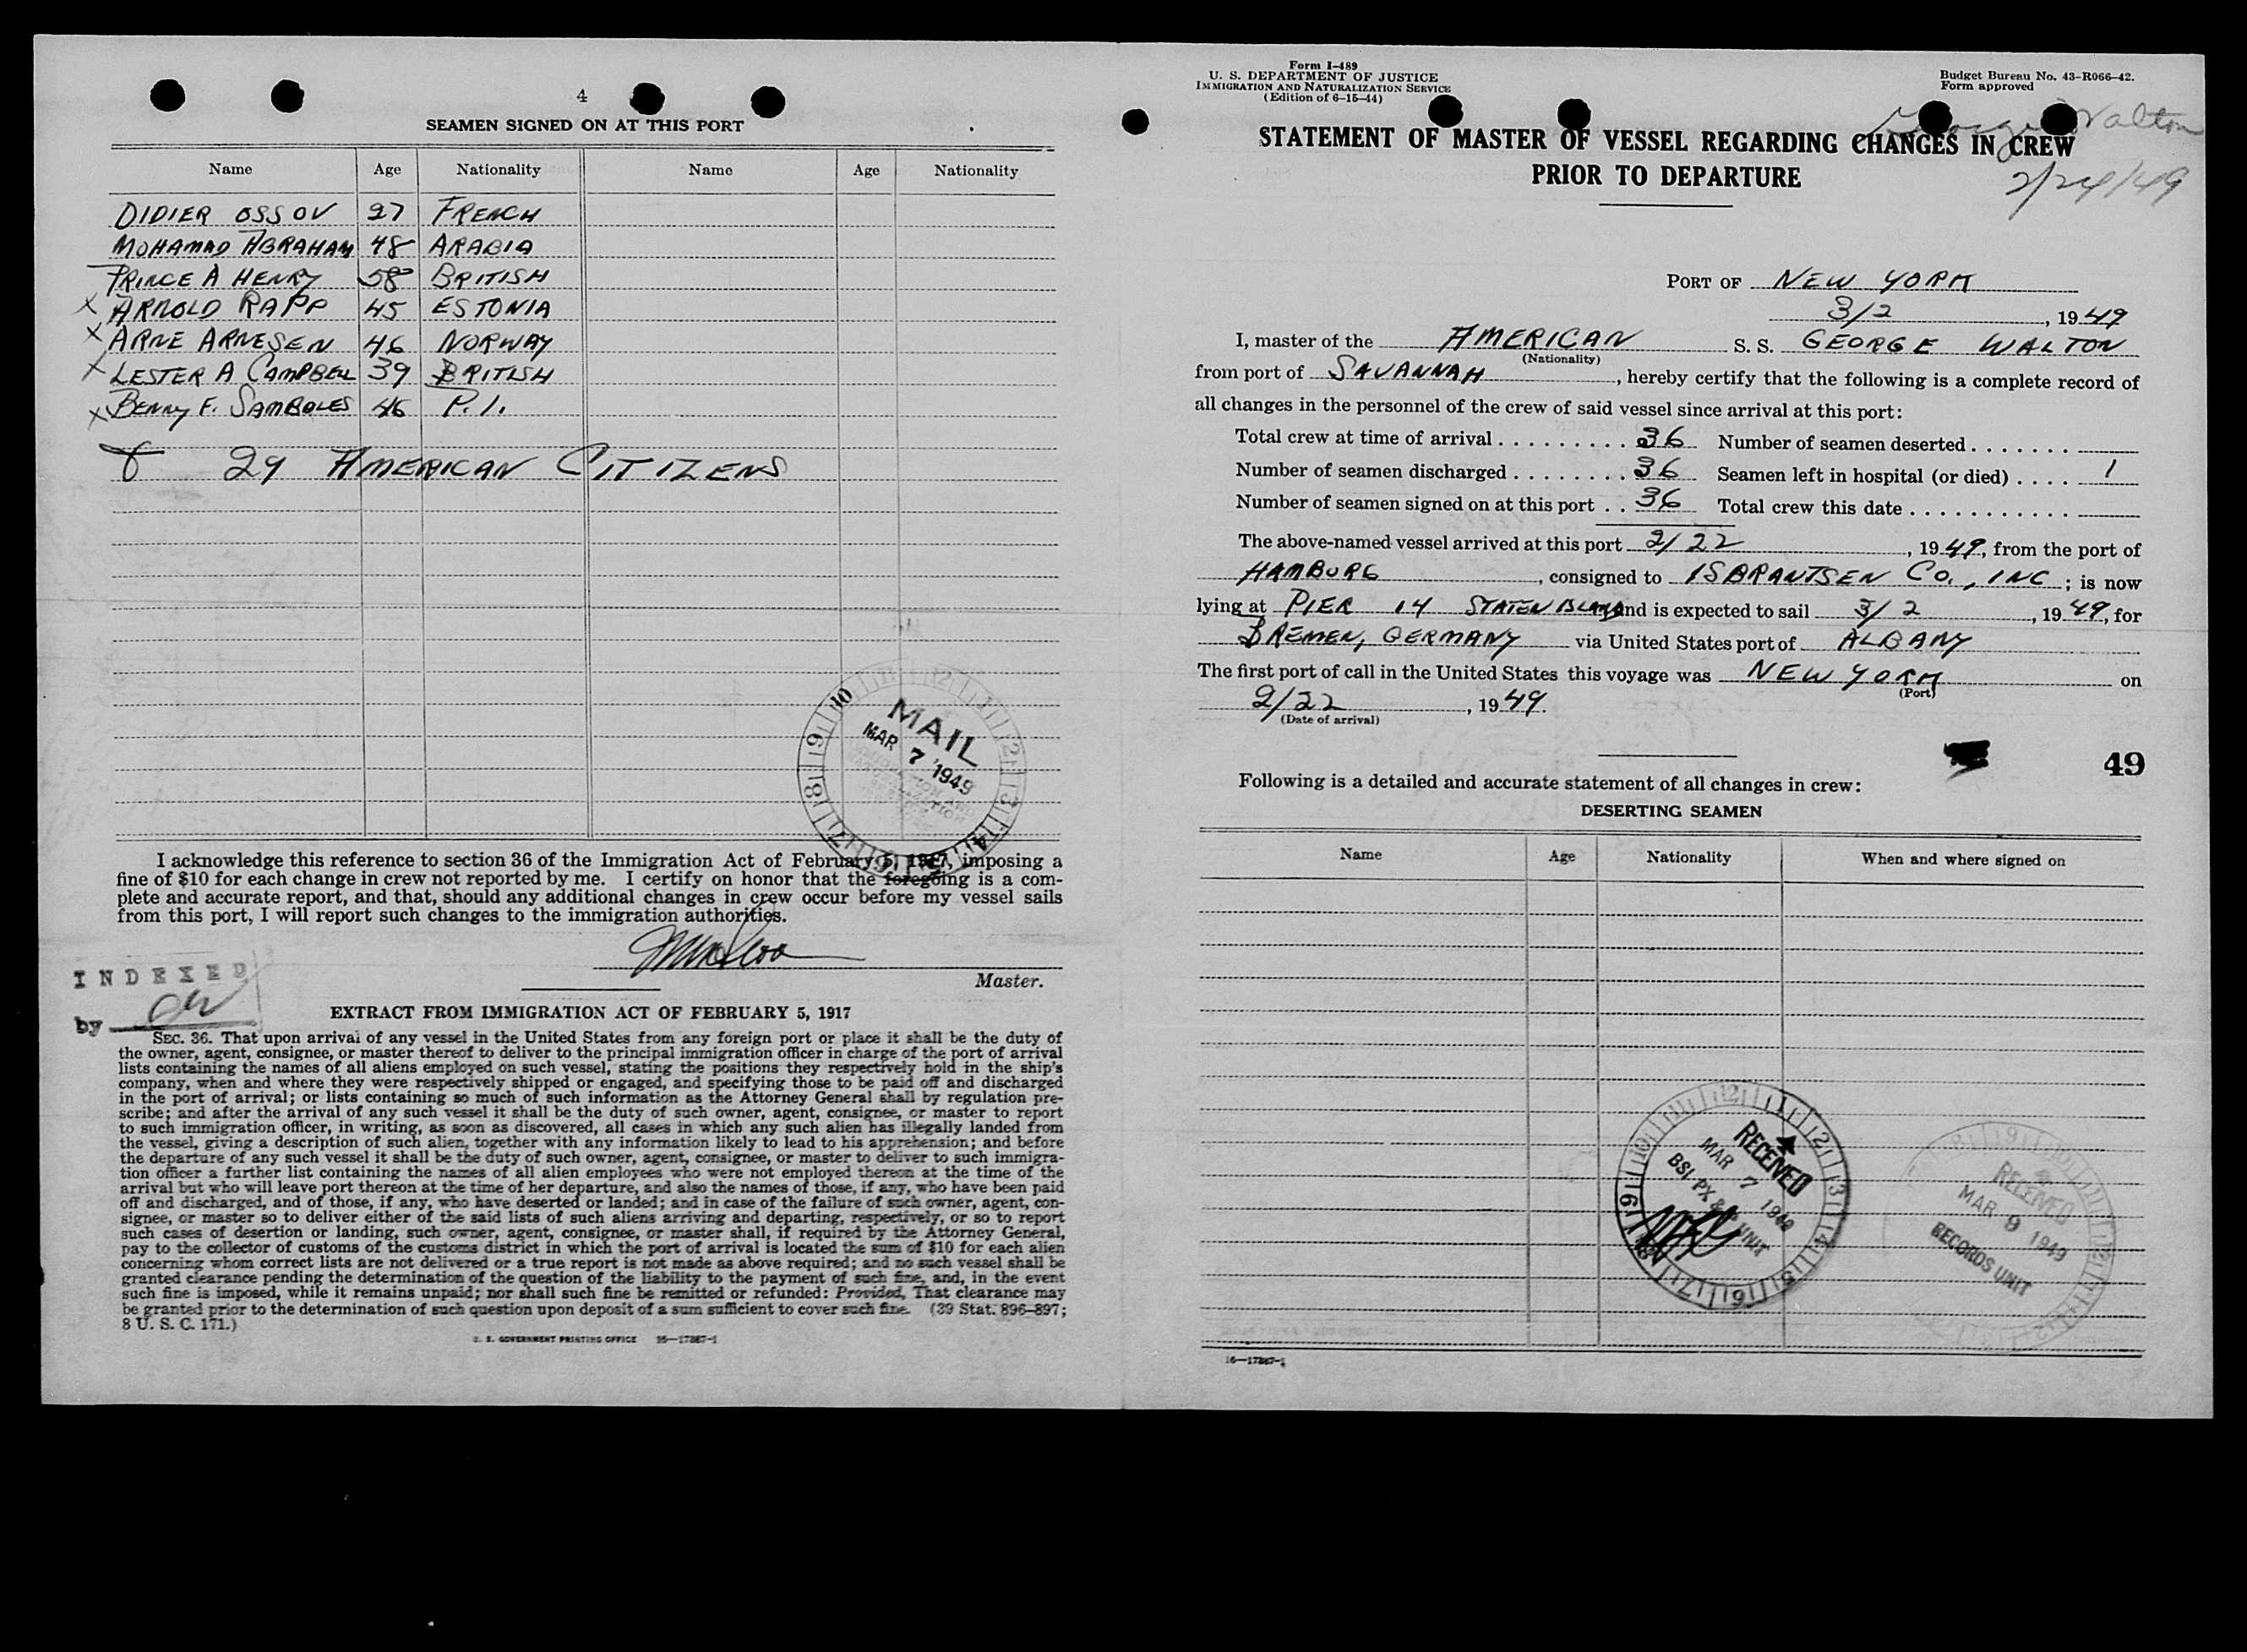 4
SEAMEN SIGNED ON AT THIS PORT
Name Age Nationality Name Age Nationality
DIDIER OSSOV 27 FRENCH
MOHAMAD ABRAHAM 48 ARABIA
PRINCE A HENRY 58 BRITISH
X ARNOLD RAPP 45 ESTONIA
X ARNE ARNESEN 46 NORWAY
X LESTER A CAMPBELL 39 BRITISH
X BENNY F. SAMBOLES 46 P.I.
& 29 AMERICAN CITIZENS
MAIL
MAR 7 1949
I acknowledge this reference to section 36 of the Immigration Act of February 5, 1917, imposing a
fine of $10 for each change in crew not reported by me. I certify on honor that the foregoing is a com-
plete and accurate report, and that, should any additional changes in crew occur before my vessel sails
from this port, I will report such changes to the immigration authorities.
Master.
INDEXED
by
EXTRACT FROM IMMIGRATION ACT OF FEBRUARY 5, 1917
SEC. 36. That upon arrival of any vessel in the United States from any foreign port or place it shall be the duty of
the owner, agent, consignee, or master thereof to deliver to the principal immigration officer in charge of the port of arrival
lists containing the names of all aliens employed on such vessel, stating the positions they respectively hold in the ship's
company, when and where they were respectively shipped or engaged, and specifying those to be paid off and discharged
in the port of arrival; or lists containing so much of such information as the Attorney General shall by regulation pre-
scribe; and after the arrival of any such vessel it shall be the duty of such owner, agent, consignee, or master to report
to such immigration officer, in writing, as soon as discovered, all cases in which any such alien has illegally landed from
the vessel, giving a description of such alien, together with any information likely to lead to his apprehension; and before
the departure of any such vessel it shall be the duty of such owner, agent, consignee, or master to deliver to such immigra-
tion officer a further list containing the names of all alien employees who were not employed thereon at the time of the
arrival but who will leave port thereon at the time of her departure, and also the names of those, if any, who have been paid
off and discharged, and of those, if any, who have deserted or landed; and in case of the failure of such owner, agent, con-
signee, or master so to deliver either of the said lists of such aliens arriving and departing, respectively, or so to report
such cases of desertion or landing, such owner, agent, consignee, or master shall, if required by the Attorney General,
pay to the collector of customs of the customs district in which the port of arrival is located the sum of $10 for each alien
concerning whom correct lists are not delivered or a true report is not made as above required; and no such vessel shall be
granted clearance pending the determination of the question of the liability to the payment of such fine, and, in the event
such fine is imposed, while it remains unpaid; nor shall such fine be remitted or refunded: Provided, That clearance may
be granted prior to the determination of such question upon deposit of a sum sufficient to cover such fine. (39 Stat. 896-897;
8 U. S. C. 171.)
U. S. GOVERNMENT PRINTING OFFICE 16—17867-1
Form I-489
U. S. DEPARTMENT OF JUSTICE
IMMIGRATION AND NATURALIZATION SERVICE
(Edition of 6-15-44)
Budget Bureau No. 43-R066-42.
Form approved
George Walton
2/24/49
STATEMENT OF MASTER OF VESSEL REGARDING CHANGES IN CREW
PRIOR TO DEPARTURE
PORT OF NEW YORK
3/2, 1949
I, master of the AMERICAN S. S. GEORGE WALTON
(Nationality)
from port of SAVANNAH, hereby certify that the following is a complete record of
all changes in the personnel of the crew of said vessel since arrival at this port:
Total crew at time of arrival . . . . . . . . . 36 Number of seamen deserted . . . . . . .
Number of seamen discharged . . . . . . . . 36 Seamen left in hospital (or died) . . . . 1
Number of seamen signed on at this port . . 36 Total crew this date . . . . . . . . . . . .
The above-named vessel arrived at this port 2/22, 1949, from the port of
HAMBURG, consigned to ISBRANTSEN CO., INC; is now
lying at PIER 14 STATEN ISLAND and is expected to sail 3/2, 1949, for
BREMEN, GERMANY via United States port of ALBANY
The first port of call in the United States this voyage was NEW YORK on
(Port)
2/22, 1949.
(Date of arrival)
49
Following is a detailed and accurate statement of all changes in crew:
DESERTING SEAMEN
Name Age Nationality When and where signed on
RECEIVED
MAR 7 1949
BSI, PX & UNIT
RECEIVED
MAR 9 1949
RECORDS UNIT
16—17867-1